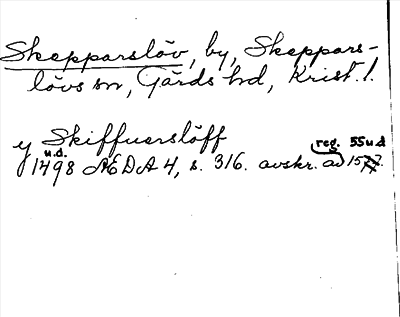 Skepparslöv, by, Skeppars-
lövs sn, Gärds hd, Krist. l.
y Skiffuerslöff
u.d. reg. 55 u d
1498 ÆDA 4, s. 316. avskr. av 1577.